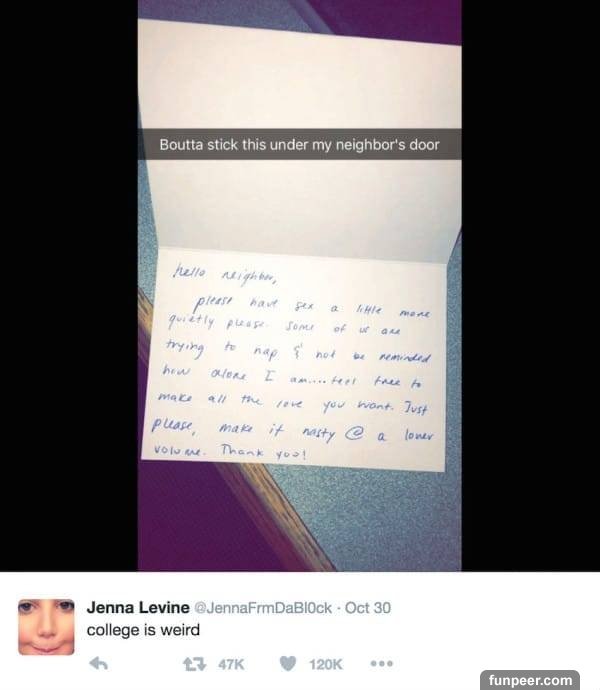 Boutta stick this under my neighbor's door
hello neighbor,
please have sex a little more
quietly please. Some of us are
trying to nap & not be reminded
how alone I am.... feel free to
make all the love you want. Just
please, make it nasty @ a lower
volume. Thank you!
Jenna Levine @JennaFrmDaBl0ck · Oct 30
college is weird
47K 120K
funpeer.com